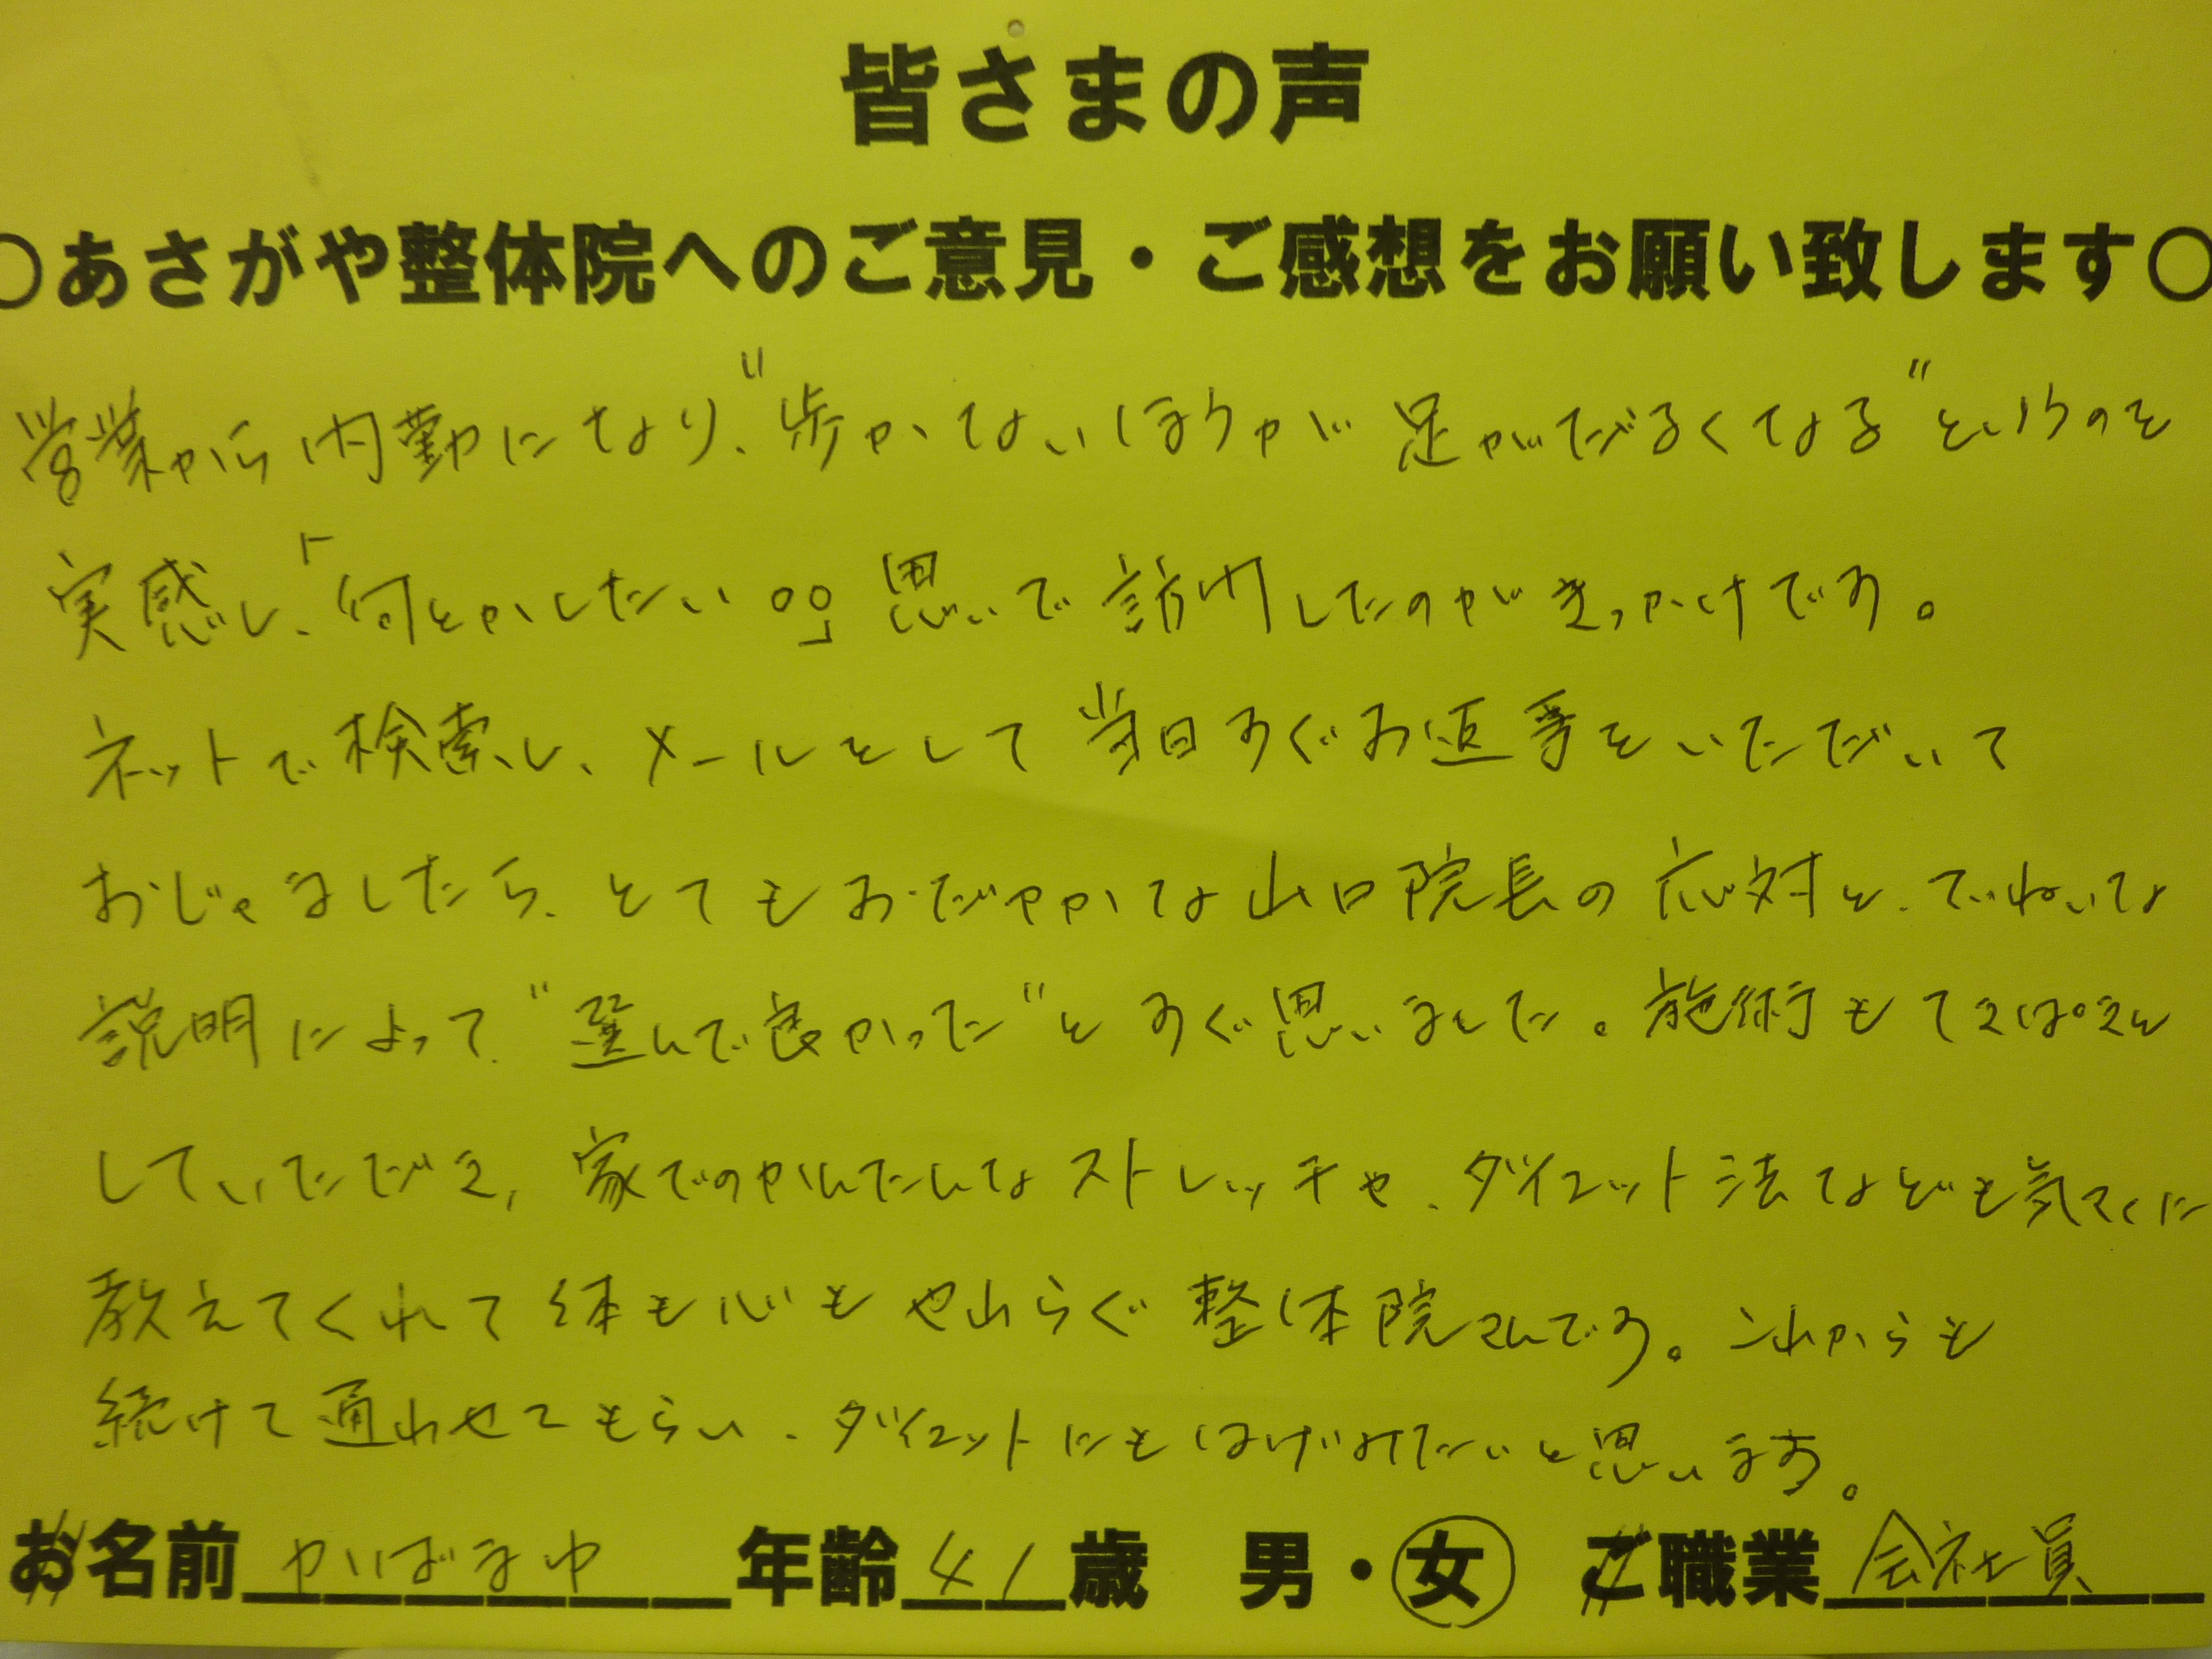 皆さまの声
○あさがや整体院へのご意見・ご感想をお願い致します○
営業から内勤になり、"歩かないほうが足がだるくなる"というのを
実感し、「何とかしたい。。」思いで訪問したのがきっかけです。
ネットで検索し、メールをして当日すぐお返事をいただいて
おじゃましたら、とてもおだやかな山口院長の応対と、ていねいな
説明によって、"選んで良かった"とすぐ思いました。施術もてきぱきと
していただき、家でのかんたんなストレッチや、ダイエット法なども気さくに
教えてくれて体も心もやわらぐ整体院さんです。これからも
続けて通わせてもらい、ダイエットにもはげみたいと思います。
お名前 かばまゆ 年齢 41 歳 男・女 ご職業 会社員